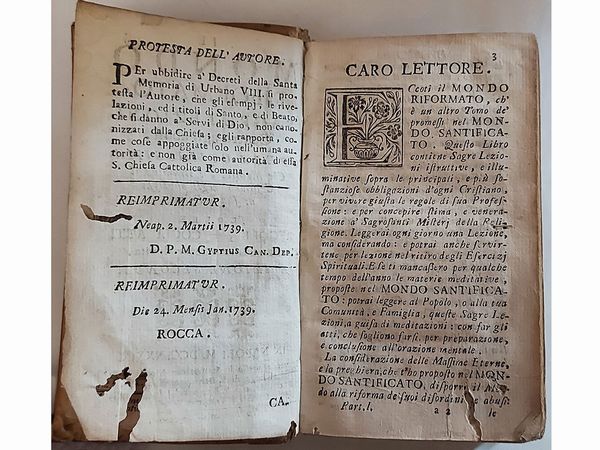 PROTESTA DELL' AUTORE.
PEr ubbidire a' Decreti della Santa
Memoria di Urbano VIII. si pro-
testa l'Autore, che gli esempj, le rive-
lazioni, ed i titoli di Santo, e di Beato,
che si danno a' Servi di Dio, non cano-
nizzati dalla Chiesa; egli rapporta, co-
me cose appoggiate solo nell'umana au-
torità: e non già come autorità di essa
S. Chiesa Cattolica Romana.
REIMPRIMATUR.
Neap. 2. Martii 1739.
D. P. M. GYPTIUS CAN. DEP.
REIMPRIMATUR.
Die 24. Mensis Jan. 1739.
ROCCA.
CA.
3
CARO LETTORE.
ECcoti il MONDO
RIFORMATO, ch'
è un altro Tomo de'
promessi nel MON-
DO SANTIFICA-
TO. Questo Libro
contiene Sagre Lezio-
ni istruttive, e illu-
minative sopra le principali, e più so-
stanziose obbligazioni d'ogni Cristiano,
per vivere giusta le regole di sua Profes-
sione: e per concepire stima, e venera-
zione a' Sagrosanti Misterj della Reli-
gione. Leggerai ogni giorno una Lezione,
ma considerando: e potrai anche servir-
tene per lezione nel ritiro degli Esercizj
Spirituali. E se ti mancassero per qualche
tempo dell'anno le materie meditative,
proposte nel MONDO SANTIFICA-
TO: potrai leggere al Popolo, o alla tua
Comunità, e Famiglia, queste Sagre Le-
zioni, a guisa di meditazioni: con far gli
atti, che sogliono farsi, per preparazione,
e conclusione all'orazione mentale.
La considerazione delle Massime Eterne,
e la preghiera, che t'ho proposto nel MON-
DO SANTIFICATO, disporrà il
do alla riforma de' suoi disordini e abusi
Part. I. a 2 le